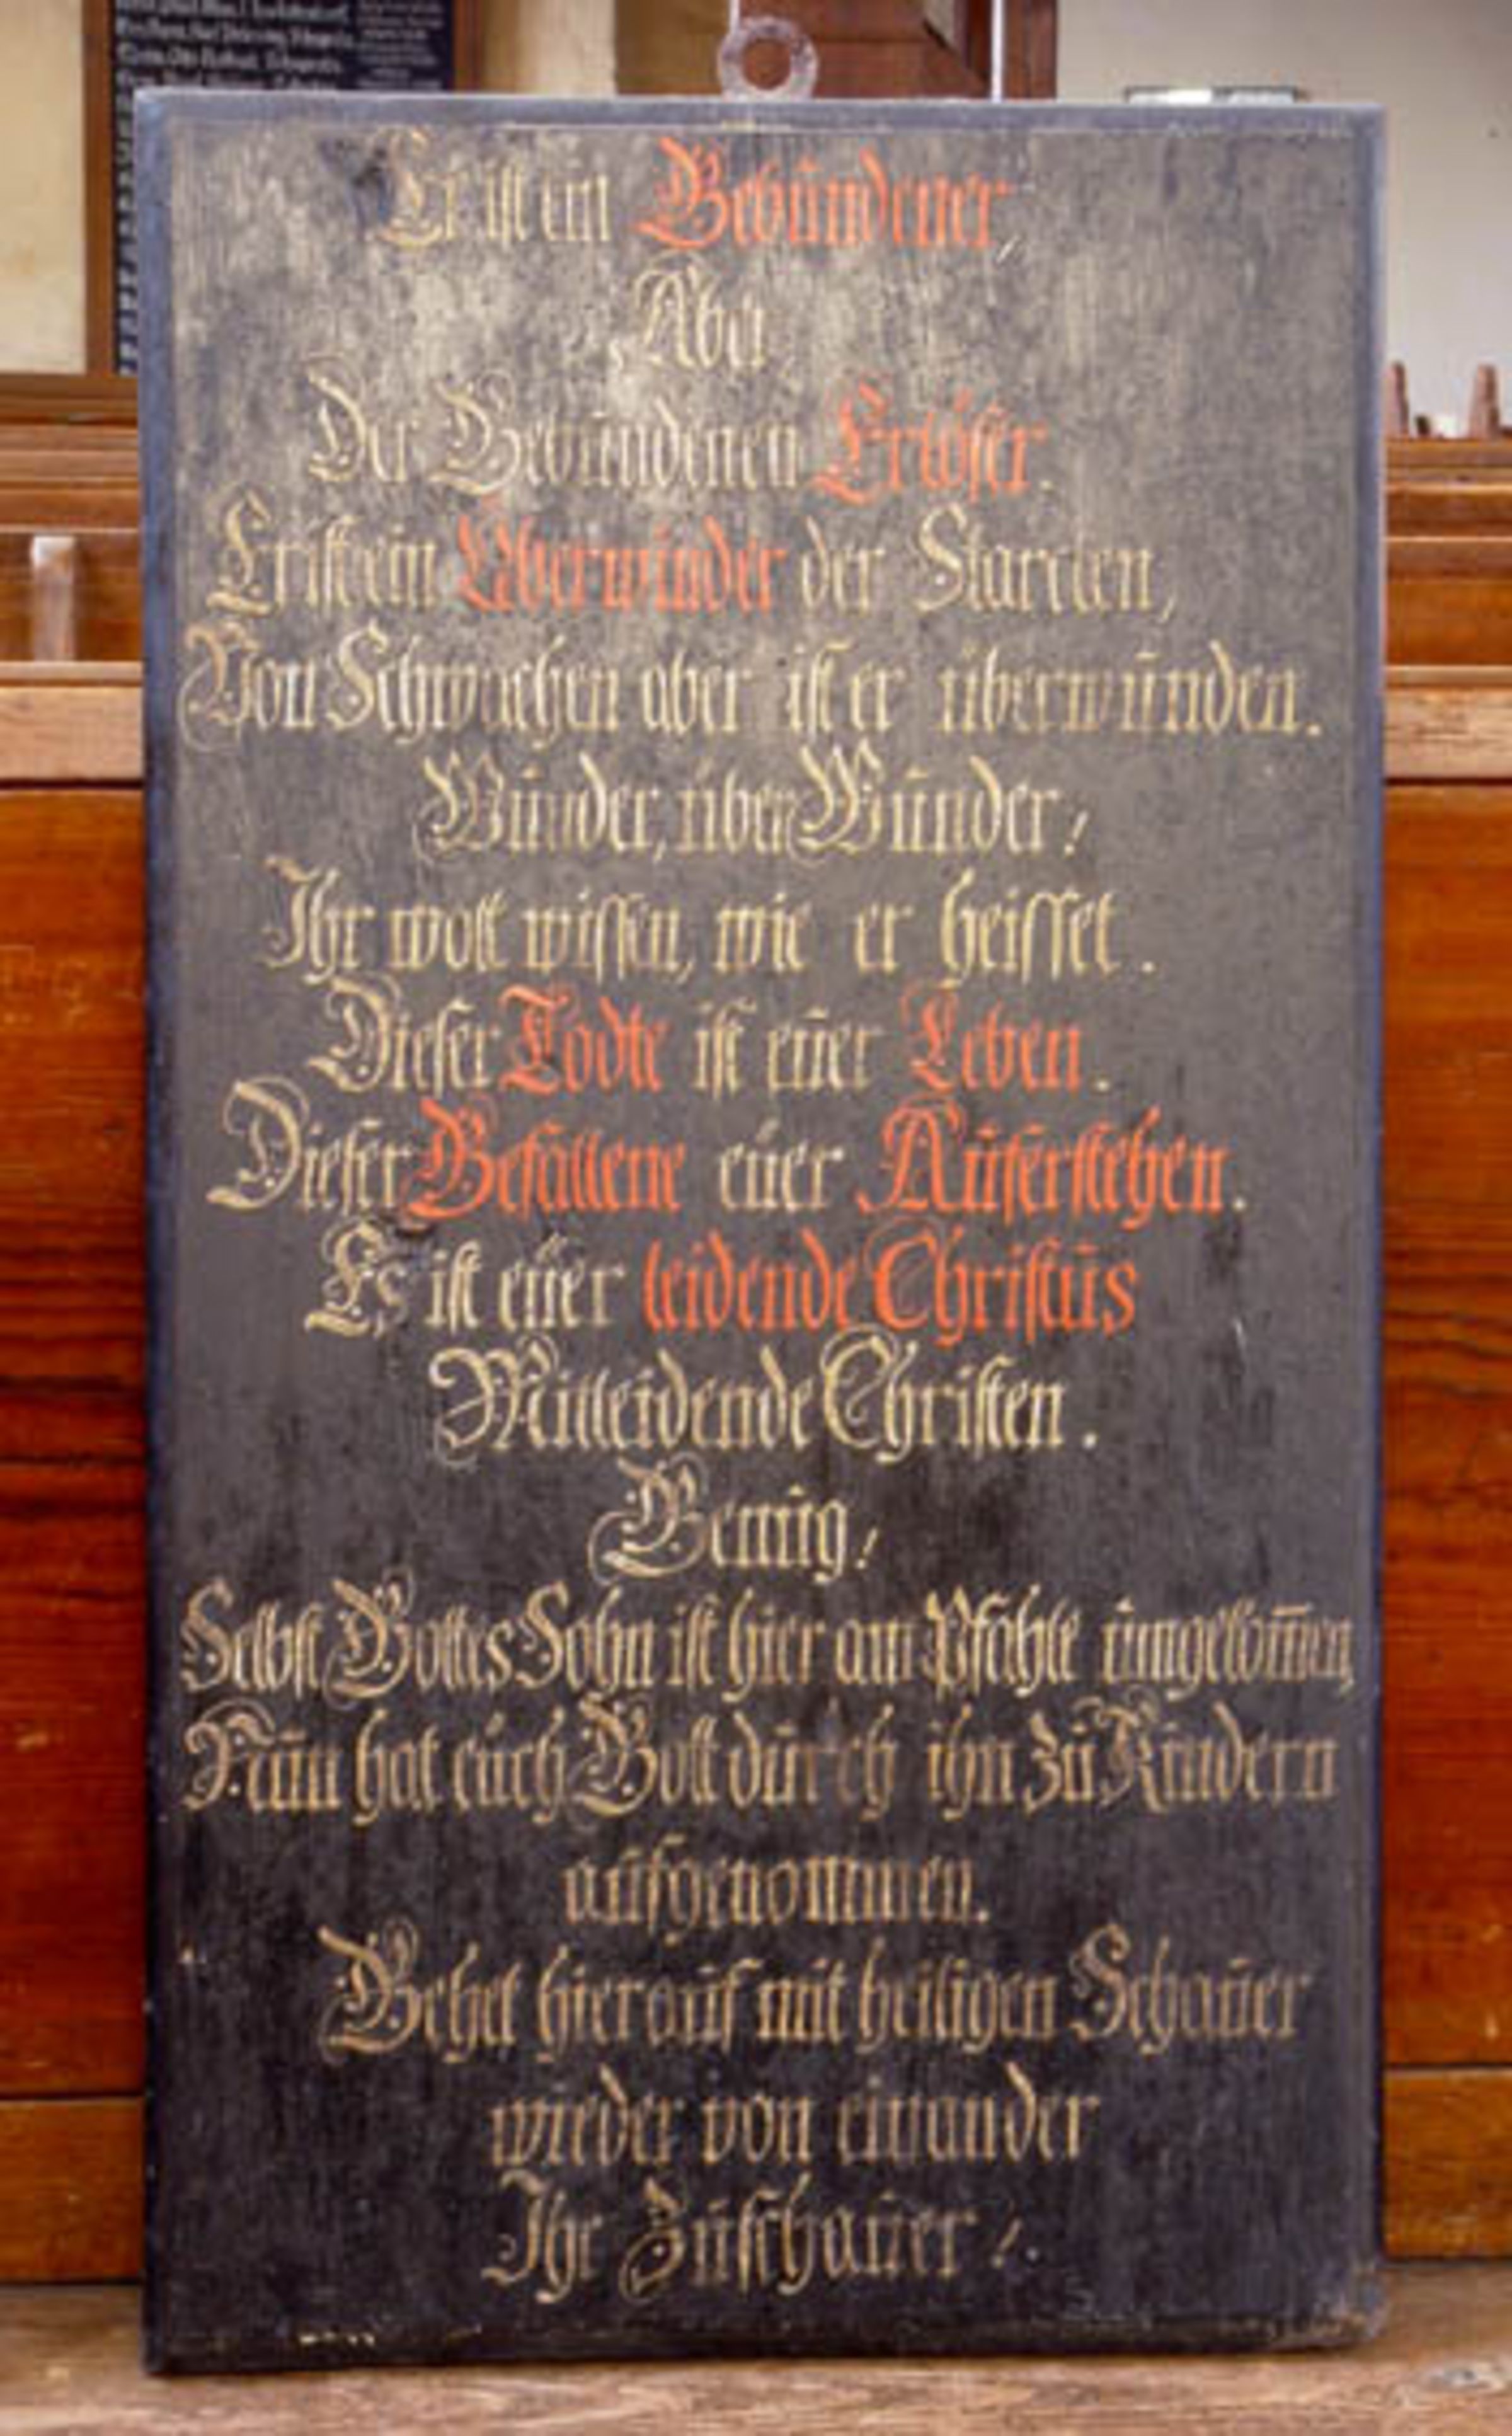 Er ist ein Gebundener,
Aber
Der Gebundenen Erlöser.
Er ist ein Überwinder der Starcken,
Von Schwachen aber ist er überwunden.
Wunder, über Wunder!
Ihr wolt wissen, wie er heisset.
Dieser Todte ist euer Leben.
Dieser Gefallene euer Auferstehen.
Es ist euer leidende Christus
Mitleidende Christen.
Genug!
Selbst Gottes Sohn ist hier am Pfahle umgekom̄en,
Nun hat euch Gott durch ihn zu Kindern
aufgenommen.
Gehet hierauf mit heiligen Schauer
wieder von einander
Ihr Zuschauer!